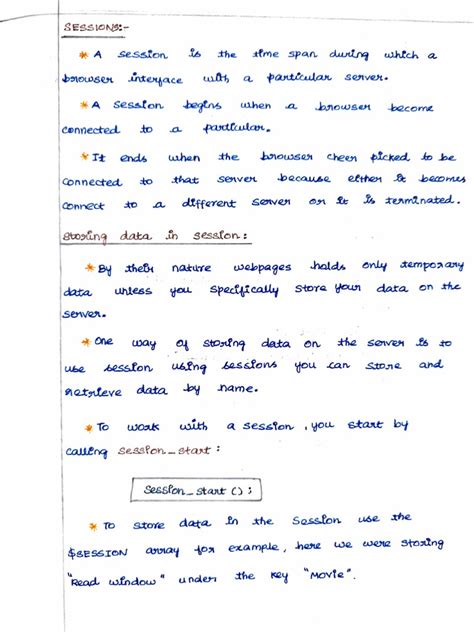 SESSIONS:-
* A session is the time span during which a
browser interface with a particular server.
* A session begins when a browser become
connected to a particular.
* It ends when the browser cheer picked to be
connected to that server because either it becomes
connect to a different server or it is terminated.
Storing data in session:
* By their nature webpages holds only temporary
data unless you specifically store your data on the
server.
* One way of storing data on the server is to
use session using sessions you can store and
retrieve data by name.
* To work with a session, you start by
calling session_start:
session_start();
* To store data in the Session use the
$SESSION array for example, here we were storing
"Read window" under the key "Movie".